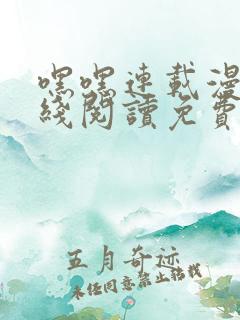 嘿嘿連載漫
綫閱讀免費
五月奇迹
未经同意禁止转载